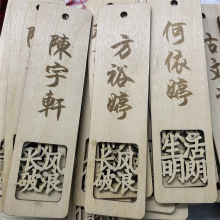 陳宇軒
长风
破浪
方裕婷
长风
破浪
何依婷
生活
明朗